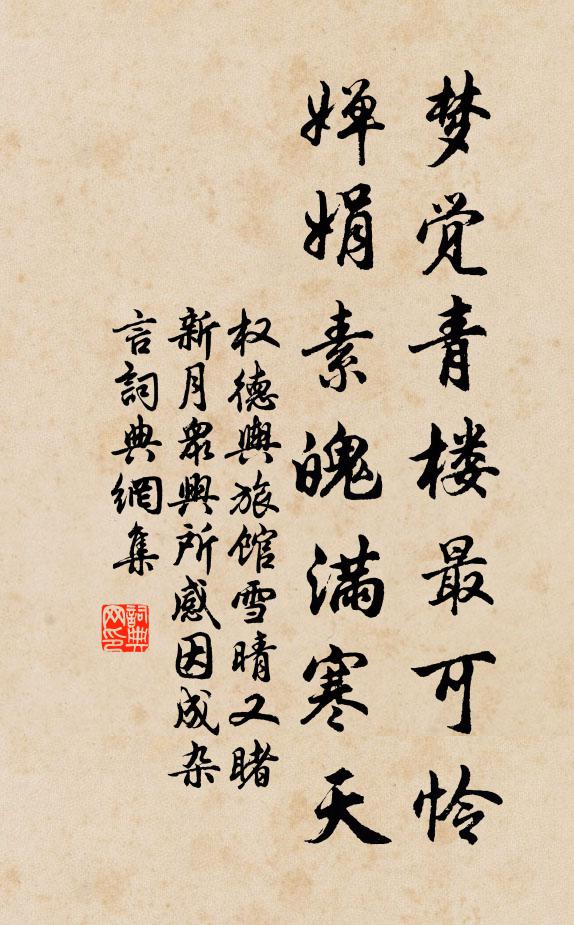 梦觉青楼最可怜
婵娟素魄满寒天
权德舆旅馆雪晴又睹
新月众兴所感因成杂
言词典網集
詞典
网印